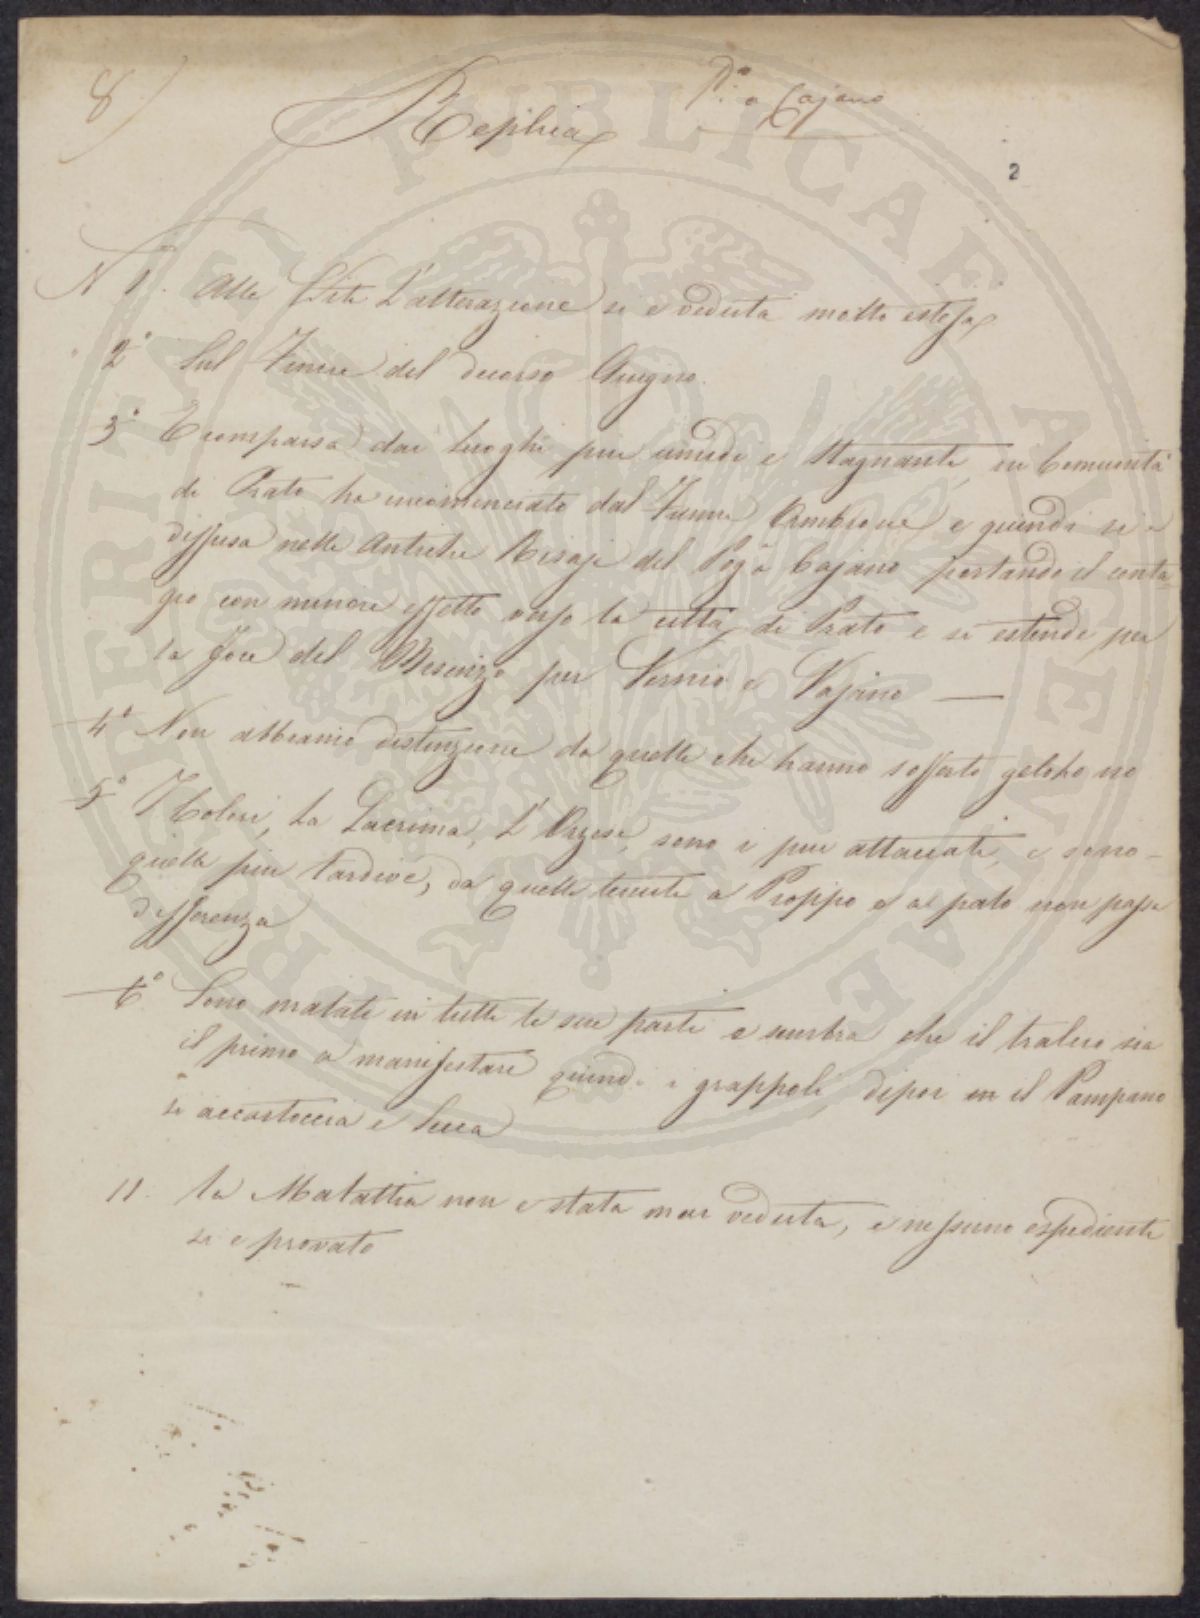 8
P.o a Cajano
Replica
2
N 1. Alle Vite L'alterazione si e veduta molto estesa
2° Sul Finire del decorso Giugno.
3° E comparsa dai luoghi piu umidi e Stagnanti, in Comunità
di Prato ha incominciato dal Fiume Ombrone e quindi si è
diffusa nelle Antiche Risaje del Pog° a Cajano portando il conta
gio con minore effetto verso la città di Prato e si estende per
la foce del Bisenzio per Vernio e Vajano —
4° Non abbiamo distinzione da quelle che hanno sofferto gelo o no
5° I Colori, La Lacrima, L' Orzese, sono i piu attaccati, e sono
quelle piu tardive, da quelle tenute a Pioppo e a palo non passa
differenza
6° Sono malate in tutte le sue parti e sembra che il tralcio sia
il primo a manifestare quindi i grappoli, dipoi il Pampano
si accartoccia e Secca
11. La Malattia non e stata mai veduta, e nessuno espediente
si e provato
PUBLICAE AVLEVDAE PROSPERITATI